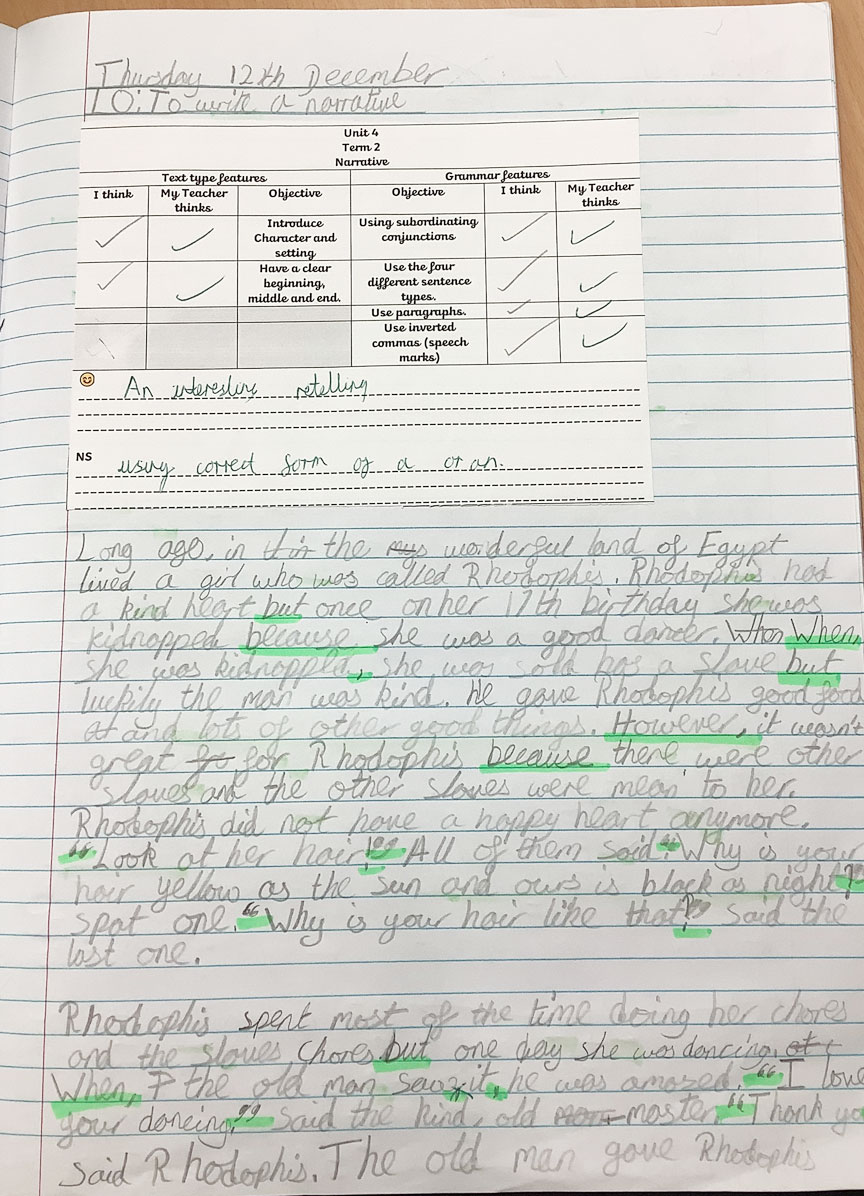 Thursday 12th December
LO: To write a narrative
Unit 4
Term 2
Narrative
Text type features Grammar features
I think My Teacher thinks Objective Objective I think My Teacher thinks
Introduce Character and setting Using subordinating conjunctions
Have a clear beginning, middle and end. Use the four different sentence types.
Use paragraphs.
Use inverted commas (speech marks)
An interesting retelling
NS using correct form of a or an.
Long ago, in the wonderful land of Egypt
lived a girl who was called Rhodophis. Rhodophis had
a kind heart but once on her 17th birthday she was
kidnapped because she was a good dancer. When,
she was kidnapped, she was sold has a slave but
luckily the man was kind. He gave Rhodophis good food
and lots of other good things. However, it wasn't
great for Rhodophis because there were other
slaves and the other slaves were mean to her.
Rhodophis did not have a happy heart anymore.
"Look at her hair!" All of them said. "Why is your
hair yellow as the sun and ours is black as night?"
spat one. "Why is your hair like that?" said the
last one.
Rhodophis spent most of the time doing her chores
and the slaves chores but one day she was dancing.
When, the old man saw it, he was amazed. "I love
your dancing." Said the kind, old master. "Thank you
said Rhodophis. The old man gave Rhodophis